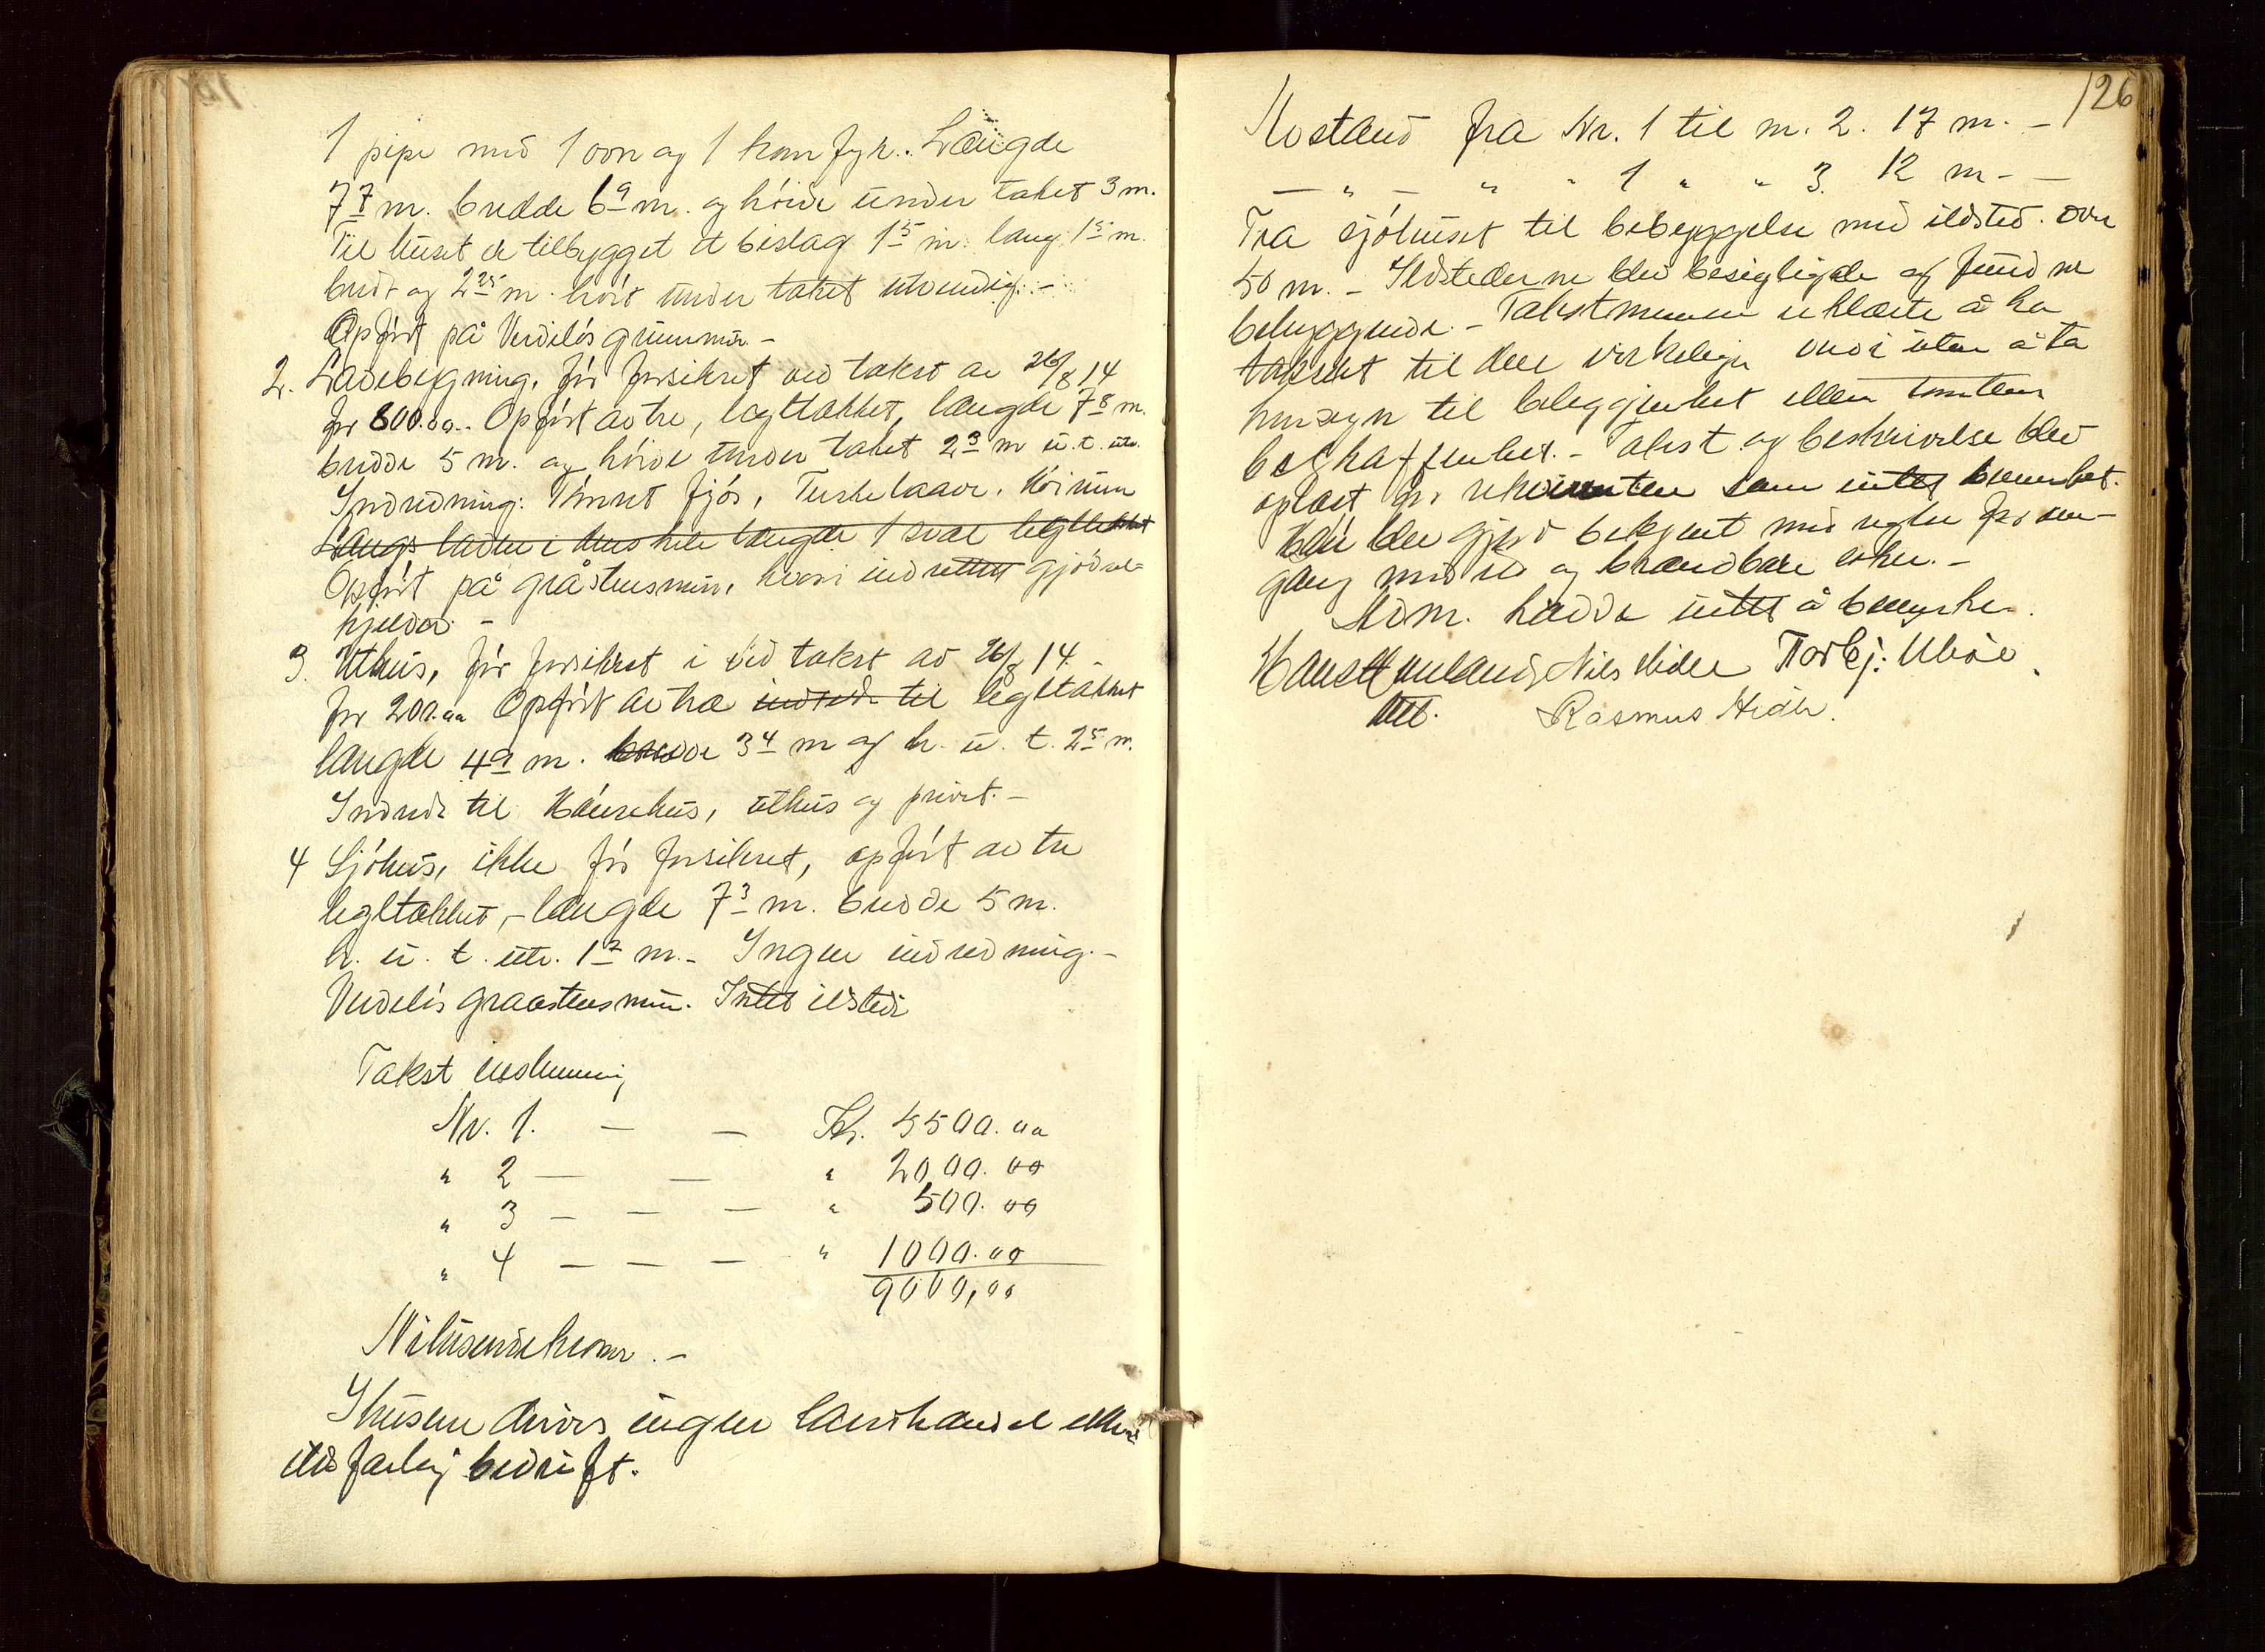 1 pipe med 1 ovn og 1 komfyr. Længde
7 7 m. bredde 6 9 m. og höide under taket 3 m.
Til huset er tilbygget et bislag 1 5 m. lang 1 5 m.
bred og 2 25 m. höit under taket utvendig. -
Opfört på Verdilös grunnmur -
2. Ladebygning, för forsikret ved takst av 26/8 14
for 800.00. Opfört av tre, tegltækket, længde 7 8 m.
bredde 5 m. og höide under taket 2 3 m u. t. utv.
Indredning: Tömret fjös, Treskelaave, Höirum
Langs laden i dens hele længde 1 sval tegltækket
Opfört på gråstensmur, hvori indrettet gjödsel-
kjelder. -
3. Uthus, för forsikret i ved takst av 26/8 14. -
for 200.00 Opfört av træ indredet til tegltækket
længde 4 9 m. bredde 3 4 m og h. u. t. 2 5 m.
Indredet til Hönsehus, uthus og privet. -
4 Sjöhus, ikke för forsikret, opfört av tre
tegltækket, - længde 7 3 m. bredde 5 m.
h. u. t. utv. 1 7 m. - Ingen indredning. -
Verdilös graastensmur. Intet ildsted
Takst
Nr. 1. - - Kr. 5500.00
" 2 - - " 2000.00
" 3 - - - " 500.00
" 4 - - - " 1000.00
9000,00
Nitusenkroner. -
I husene drives ingen landhandel eller
ildsfarlig bedrift.
126
Avstand fra Nr. 1 til nr. 2. 17 m. -
- " - " " 1 " " 3. 12 m - -
Fra sjöhuset til bebyggelse med ildsted over
50 m. - Ildstederne blev besigtigede og fundne
betryggende. - Takstmennen erklærte å ha
taksert til den virkelige verdi uten å ta
hensyn til beliggenhet eller tomtens
beskaffenhet. - Takst og beskrivelse blev
oplæst for rekvirenten som intet bemerket.
Han blev gjort bekjent med regler for om-
gang med ild og brandbare saker. -
Adm. hadde intet å bemerke.
Nils Hidle Torbj: Ubøe.
Rasmus Hidle.